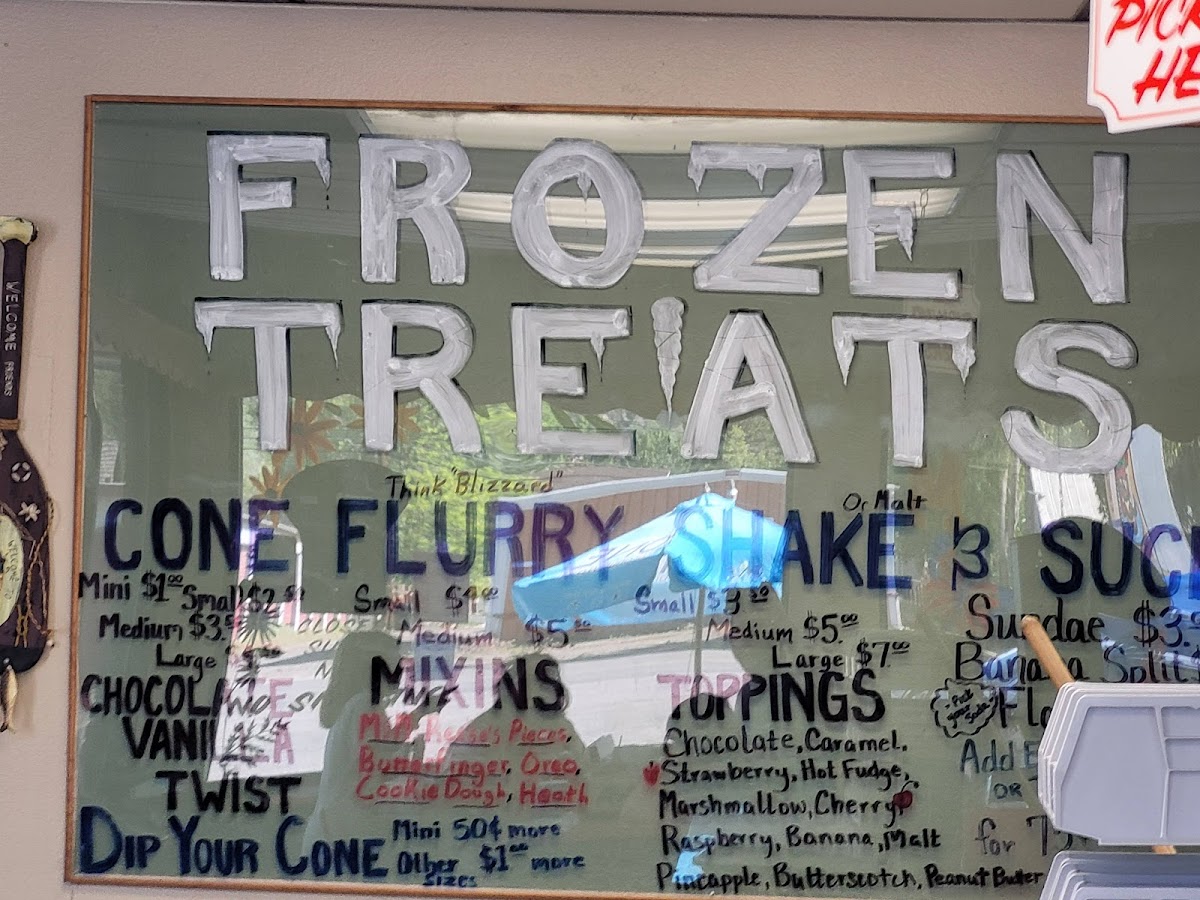 PICK
HE
FROZEN
TREATS
WELCOME FRIENDS
Think "Blizzard"
CONE FLURRY SHAKE Or Malt
Mini $1.00 Small $2
Medium $3.5
Large
Small $4.00
Medium $5.
Small $3.50
Medium $5.00
Large $7.00
Sundae $3.
Banana Split
Flo
Add
OR
for 75
CHOCOLATE
VANILLA
TWIST
MIXINS
M&M, Reese's Pieces,
Butterfinger, Oreo,
Cookie Dough, Heath
TOPPINGS
Chocolate, Caramel,
Strawberry, Hot Fudge,
Marshmallow, Cherry
Raspberry, Banana, Malt
Pineapple, Butterscotch, Peanut Butter
DIP YOUR CONE
Mini 50¢ more
Other Sizes $1.00 more